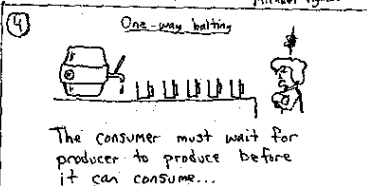 ④
One-way halting
The consumer must wait for
producer to produce before
it can consume...